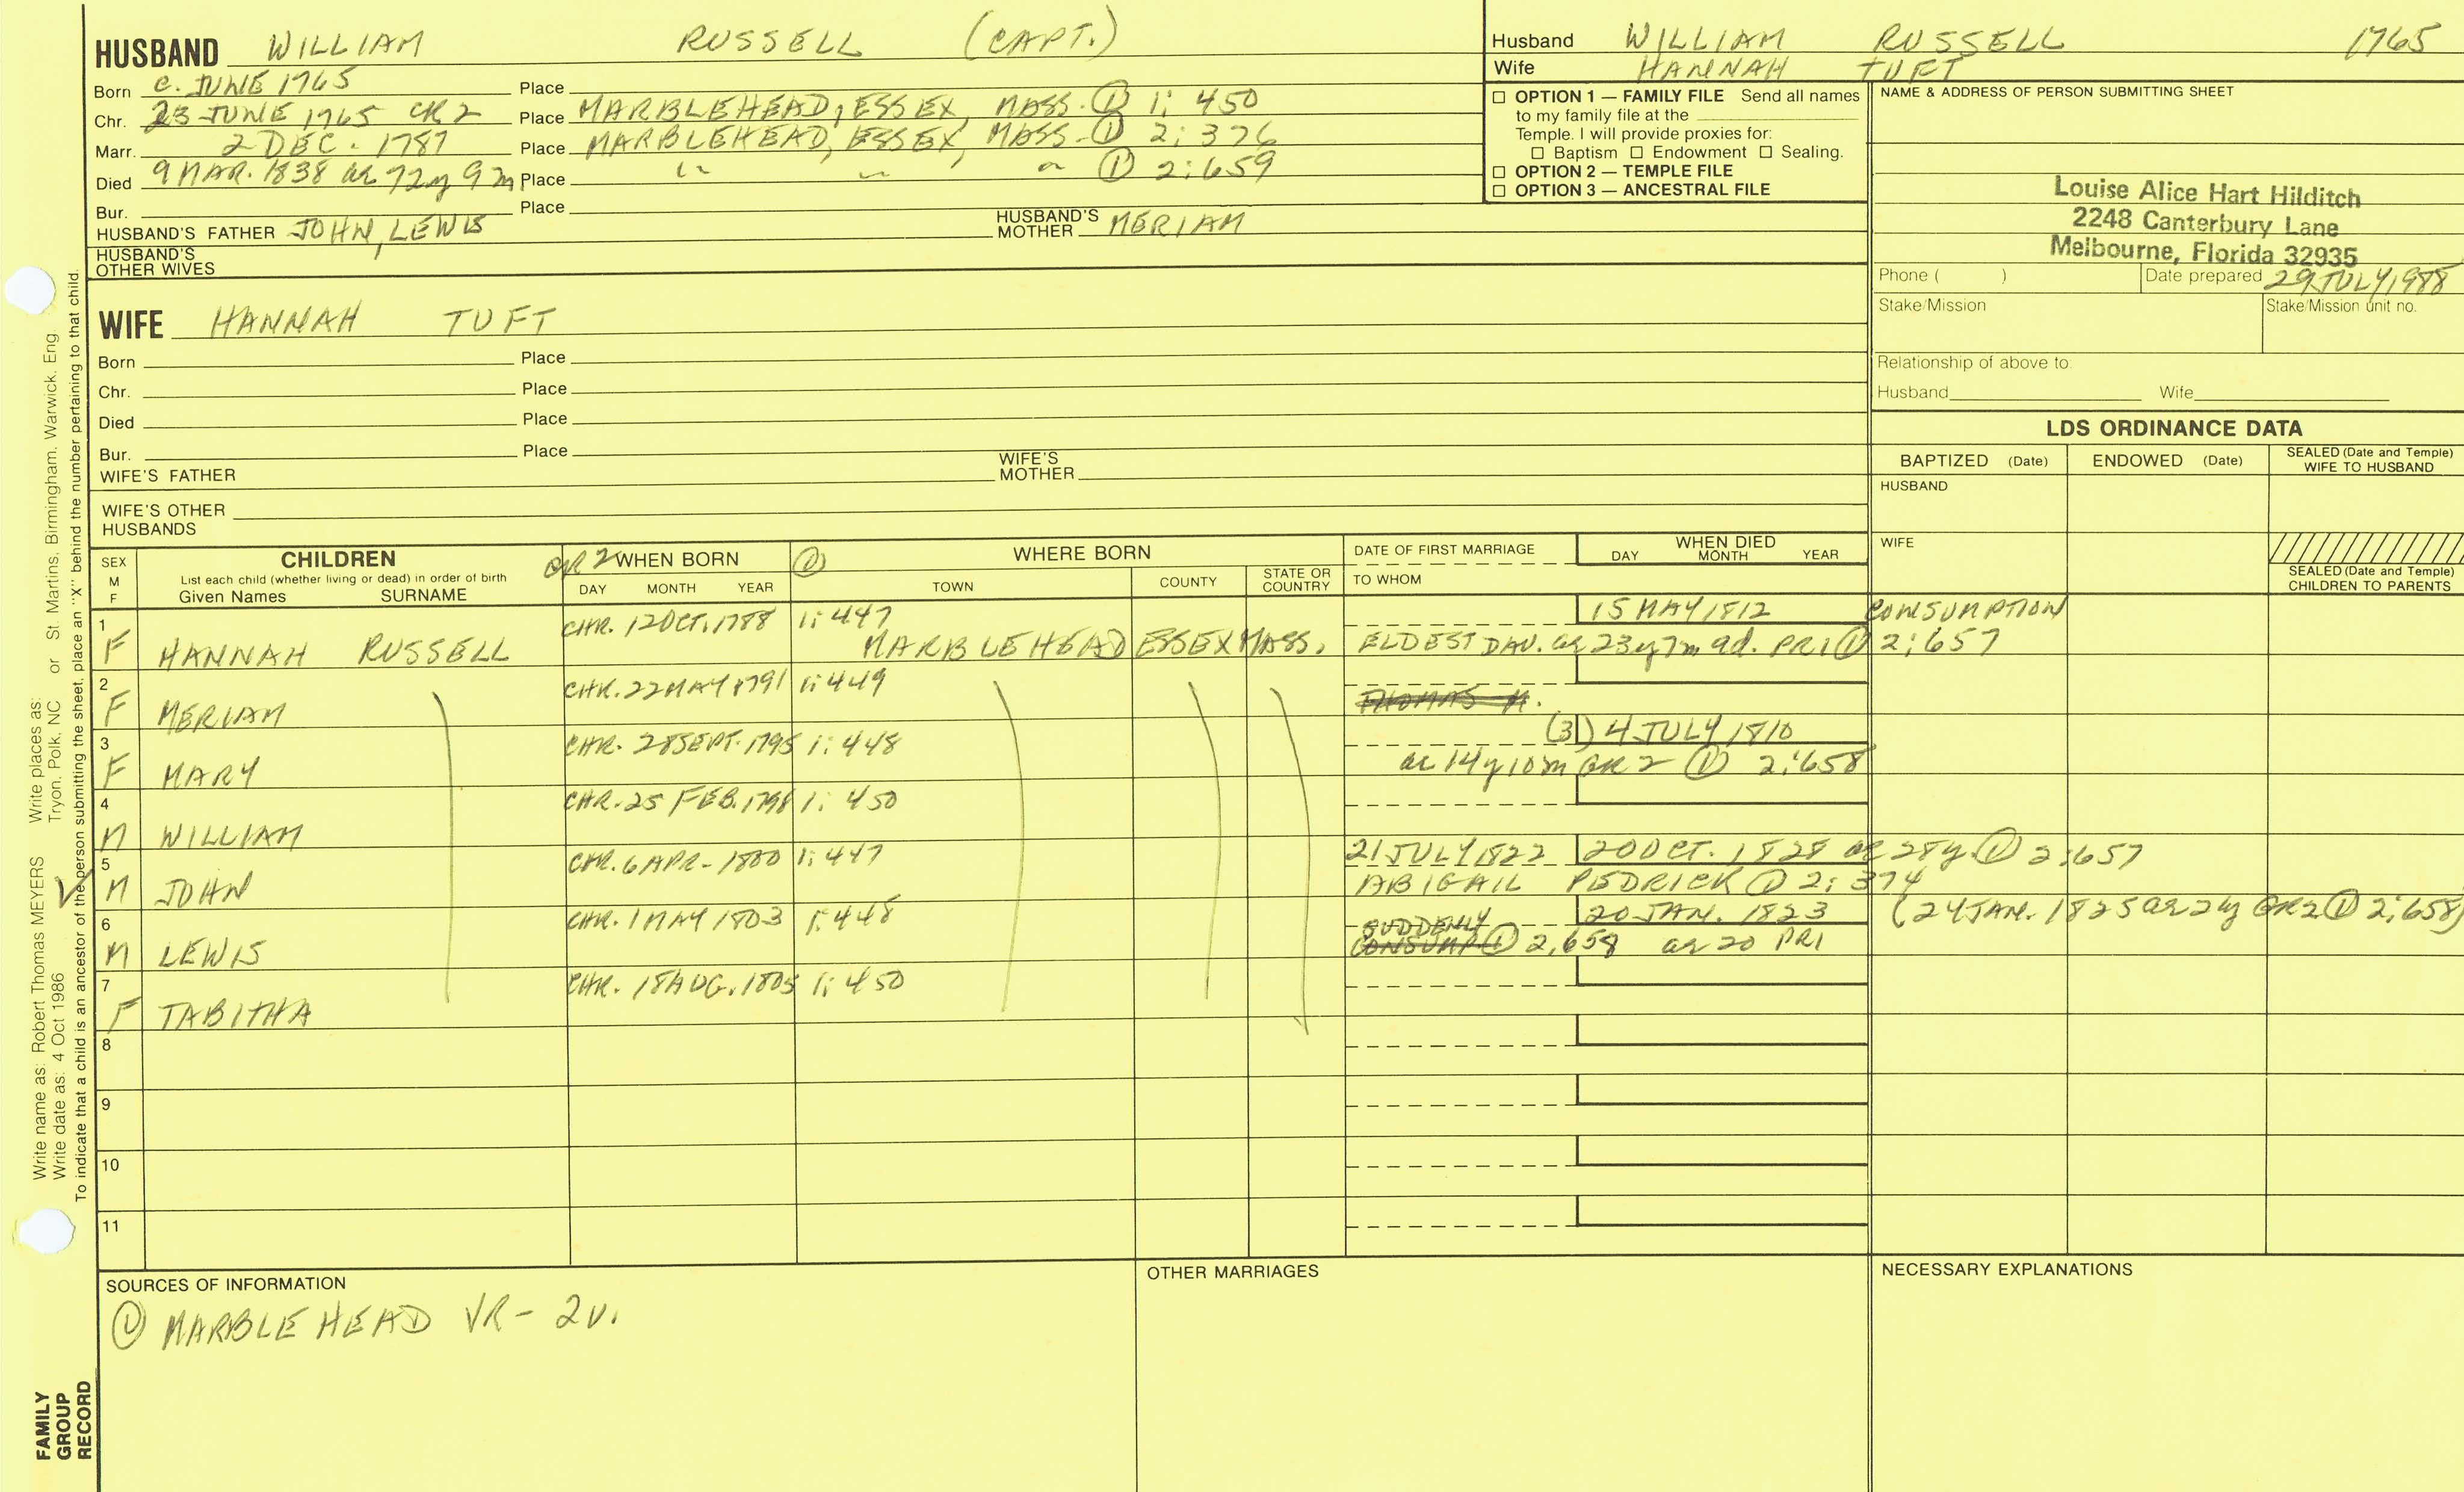 HUSBAND WILLIAM RUSSELL (CAPT.)
Born C. JUNE 1765 Place
Chr. 23 JUNE 1765 CR2 Place MARBLEHEAD, ESSEX, MASS. ① 1: 450
Marr. 2 DEC. 1787 Place MARBLEHEAD, ESSEX, MASS. ① 2: 376
Died 9 MAR. 1838 ae 72y 9m Place " " " ① 2:659
Bur. Place
HUSBAND'S FATHER JOHN, LEWIS HUSBAND'S MOTHER MERIAM
HUSBAND'S OTHER WIVES
Husband WILLIAM RUSSELL 1765
Wife HANNAH TUFT
☐ OPTION 1 — FAMILY FILE Send all names
to my family file at the
Temple. I will provide proxies for:
☐ Baptism ☐ Endowment ☐ Sealing.
☐ OPTION 2 — TEMPLE FILE
☐ OPTION 3 — ANCESTRAL FILE
NAME & ADDRESS OF PERSON SUBMITTING SHEET
Louise Alice Hart Hilditch
2248 Canterbury Lane
Melbourne, Florida 32935
Phone ( ) Date prepared 29 JULY, 1988
Stake/Mission Stake/Mission unit no.
Relationship of above to:
Husband Wife
WIFE HANNAH TUFT
Born Place
Chr. Place
Died Place
Bur. Place
WIFE'S FATHER WIFE'S MOTHER
WIFE'S OTHER HUSBANDS
LDS ORDINANCE DATA
BAPTIZED (Date) ENDOWED (Date) SEALED (Date and Temple) WIFE TO HUSBAND
HUSBAND
WIFE
SEALED (Date and Temple) CHILDREN TO PARENTS
SEX M F
CHILDREN
List each child (whether living or dead) in order of birth
Given Names SURNAME
CR 2 WHEN BORN
DAY MONTH YEAR
① WHERE BORN
TOWN COUNTY STATE OR COUNTRY
DATE OF FIRST MARRIAGE
TO WHOM
WHEN DIED
DAY MONTH YEAR
1 CHR. 12 OCT. 1788 1: 447 15 MAY 1812 CONSUMPTION
F HANNAH RUSSELL MARBLEHEAD ESSEX MASS. ELDEST DAU. ae 23y 7m 9d. PR1 ① 2: 657
2 CHR. 22 MAY 1791 1: 449
F MERIAM THOMAS H.
3 CHR. 28 SEPT. 1795 1: 448 (3) 4 JULY 1810
F MARY ae 14y 10m GR 2 ① 2: 658
4 CHR. 25 FEB. 1798 1: 450
M WILLIAM
5 CHR. 6 APR. 1800 1: 447 21 JULY 1822 20 OCT. 1828 ae 28y. ① 2: 657
✓ M JOHN ABIGAIL PEDRICK ① 2: 374
6 CHR. 1 MAY 1803 1: 448 SUDDENLY 20 JAN. 1823 (24 JAN. 1825 ae 21y GR2 ① 2: 658)
M LEWIS CONSUMP ① 2,658 ae 20 PR1
7 CHR. 18 AUG. 1805 1: 450
F TABITHA
8
9
10
11
SOURCES OF INFORMATION
① MARBLEHEAD VR - 2v.
OTHER MARRIAGES
NECESSARY EXPLANATIONS
Write name as: Robert Thomas MEYERS Write places as:
Write date as: 4 Oct 1986 Tryon, Polk, NC or St. Martins, Birmingham, Warwick, Eng
To indicate that a child is an ancestor of the person submitting the sheet, place an "X" behind the number pertaining to that child.
FAMILY
GROUP
RECORD